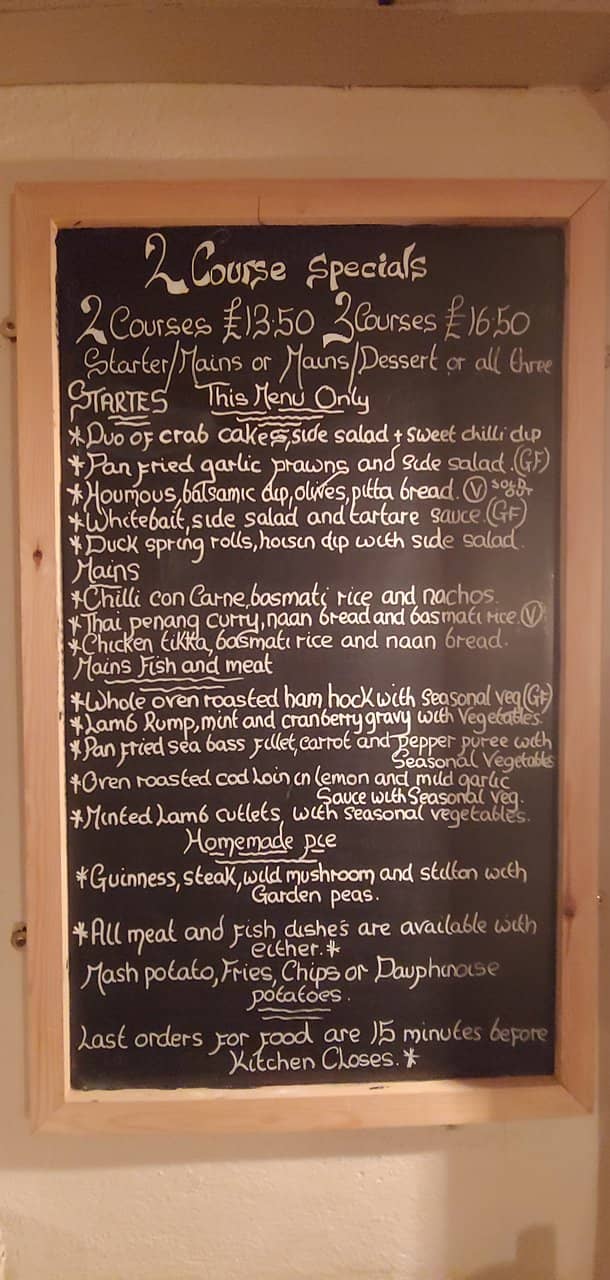 2 Course Specials
2 Courses £13.50 3 Courses £16.50
Starter/Mains or Mains/Dessert or all three
STARTES This Menu Only
*Duo of crab cakes, side salad + sweet chilli dip
*Pan fried garlic prawns and side salad. (GF)
*Houmous, balsamic dip, olives, pitta bread. (V) SOLD OUT
*Whitebait, side salad and tartare sauce. (GF)
*Duck spring rolls, hoisin dip with side salad.
Mains
*Chilli con Carne, basmati rice and nachos.
*Thai penang curry, naan bread and basmati rice. (V)
*Chicken tikka, basmati rice and naan bread.
Mains Fish and meat
*Whole oven roasted ham hock with seasonal veg (GF)
*Lamb Rump, mint and cranberry gravy with Vegetables.
*Pan fried sea bass fillet, carrot and pepper puree with
Seasonal Vegetables
*Oven roasted cod loin in lemon and mild garlic
Sauce with Seasonal Veg.
*Minted Lamb cutlets, with seasonal vegetables.
Homemade pie
*Guinness, steak, wild mushroom and stilton with
Garden peas.
*All meat and fish dishe's are available with
either.*
Mash potato, Fries, Chips or Dauphinoise
potatoes.
Last orders for food are 15 minutes before
Kitchen Closes.*